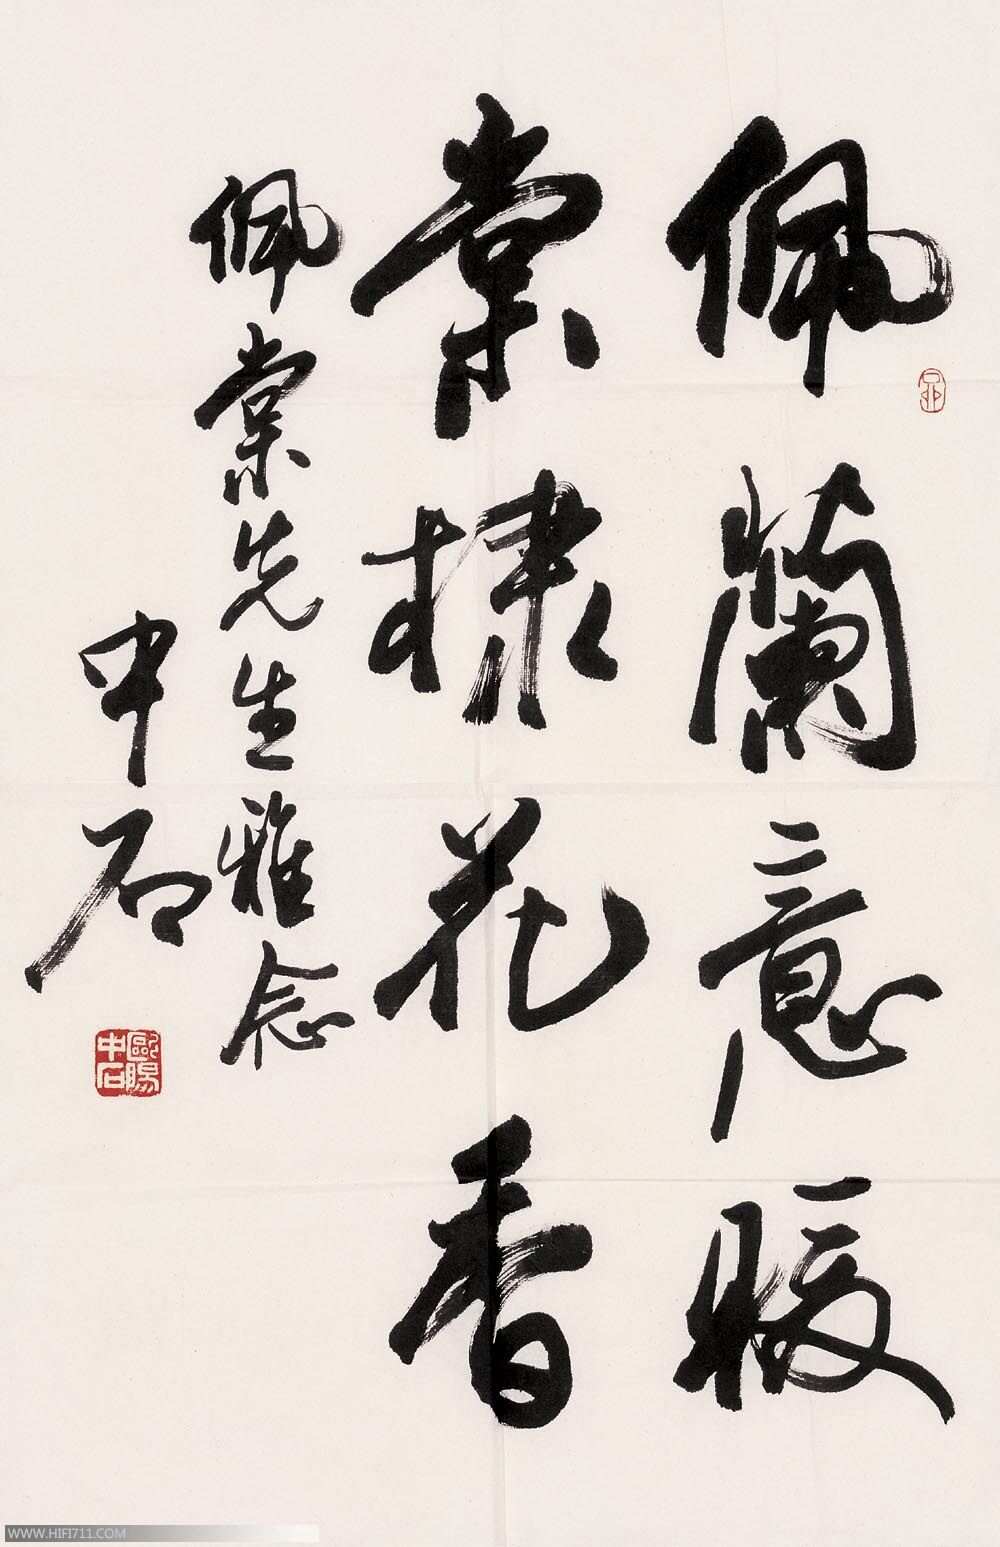 佩蘭意暖
棠棣花香
佩棠先生雅念
中石
歐陽中石
WWW.HIFI711.COM